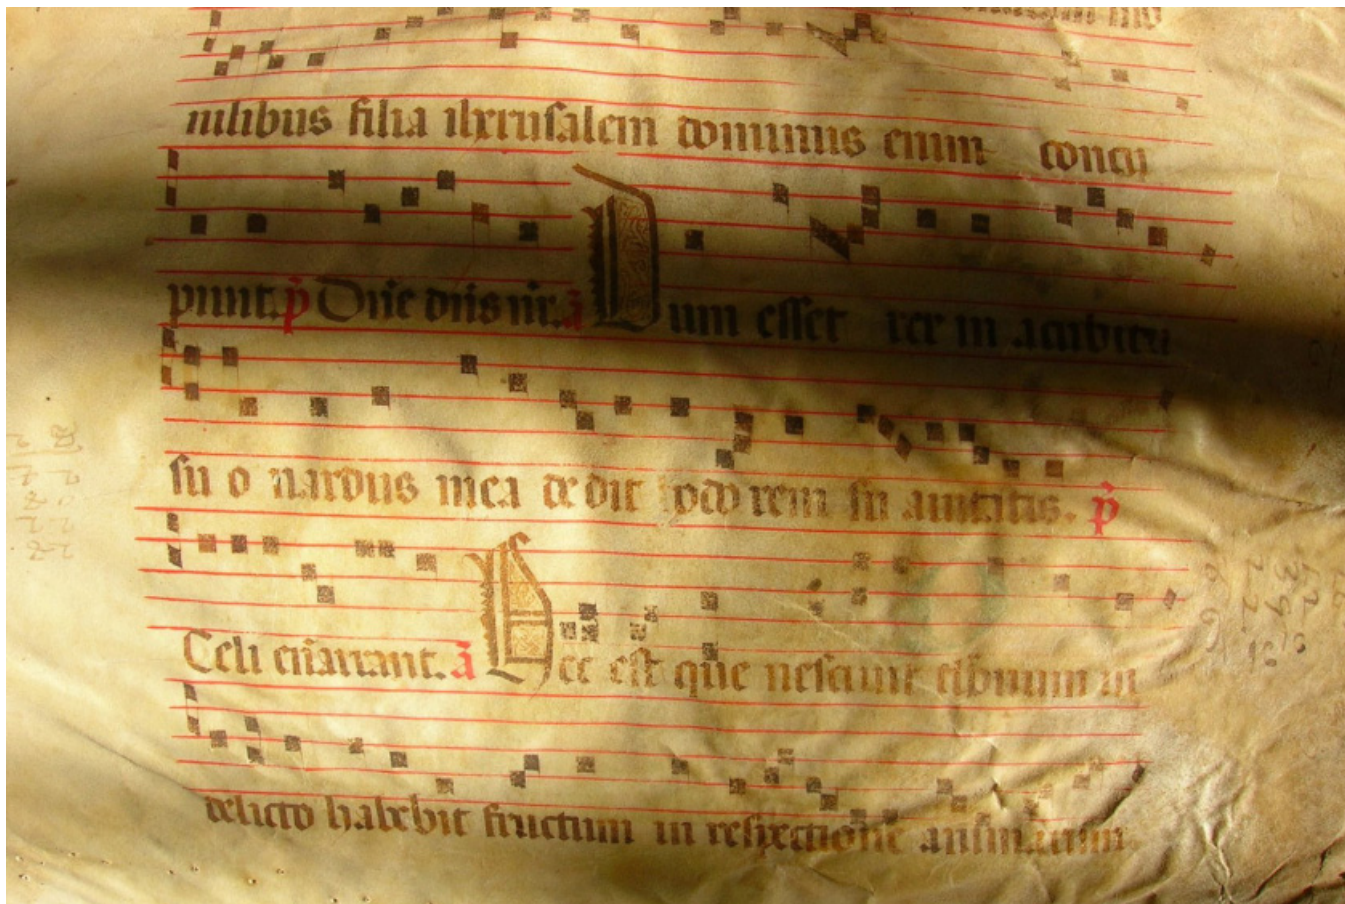 nilibus filia iherusalem dominus enim concu
piuit. p̄ Dn̄e dn̄s nr̄. ā Dum esset rex in accubitu
su o nardus mea de dit hodo rem su auitatis. p̄
Celi enarrant. ā Hec est que nesciuit thorum in
delicto habebit fructum in respectione animarum.